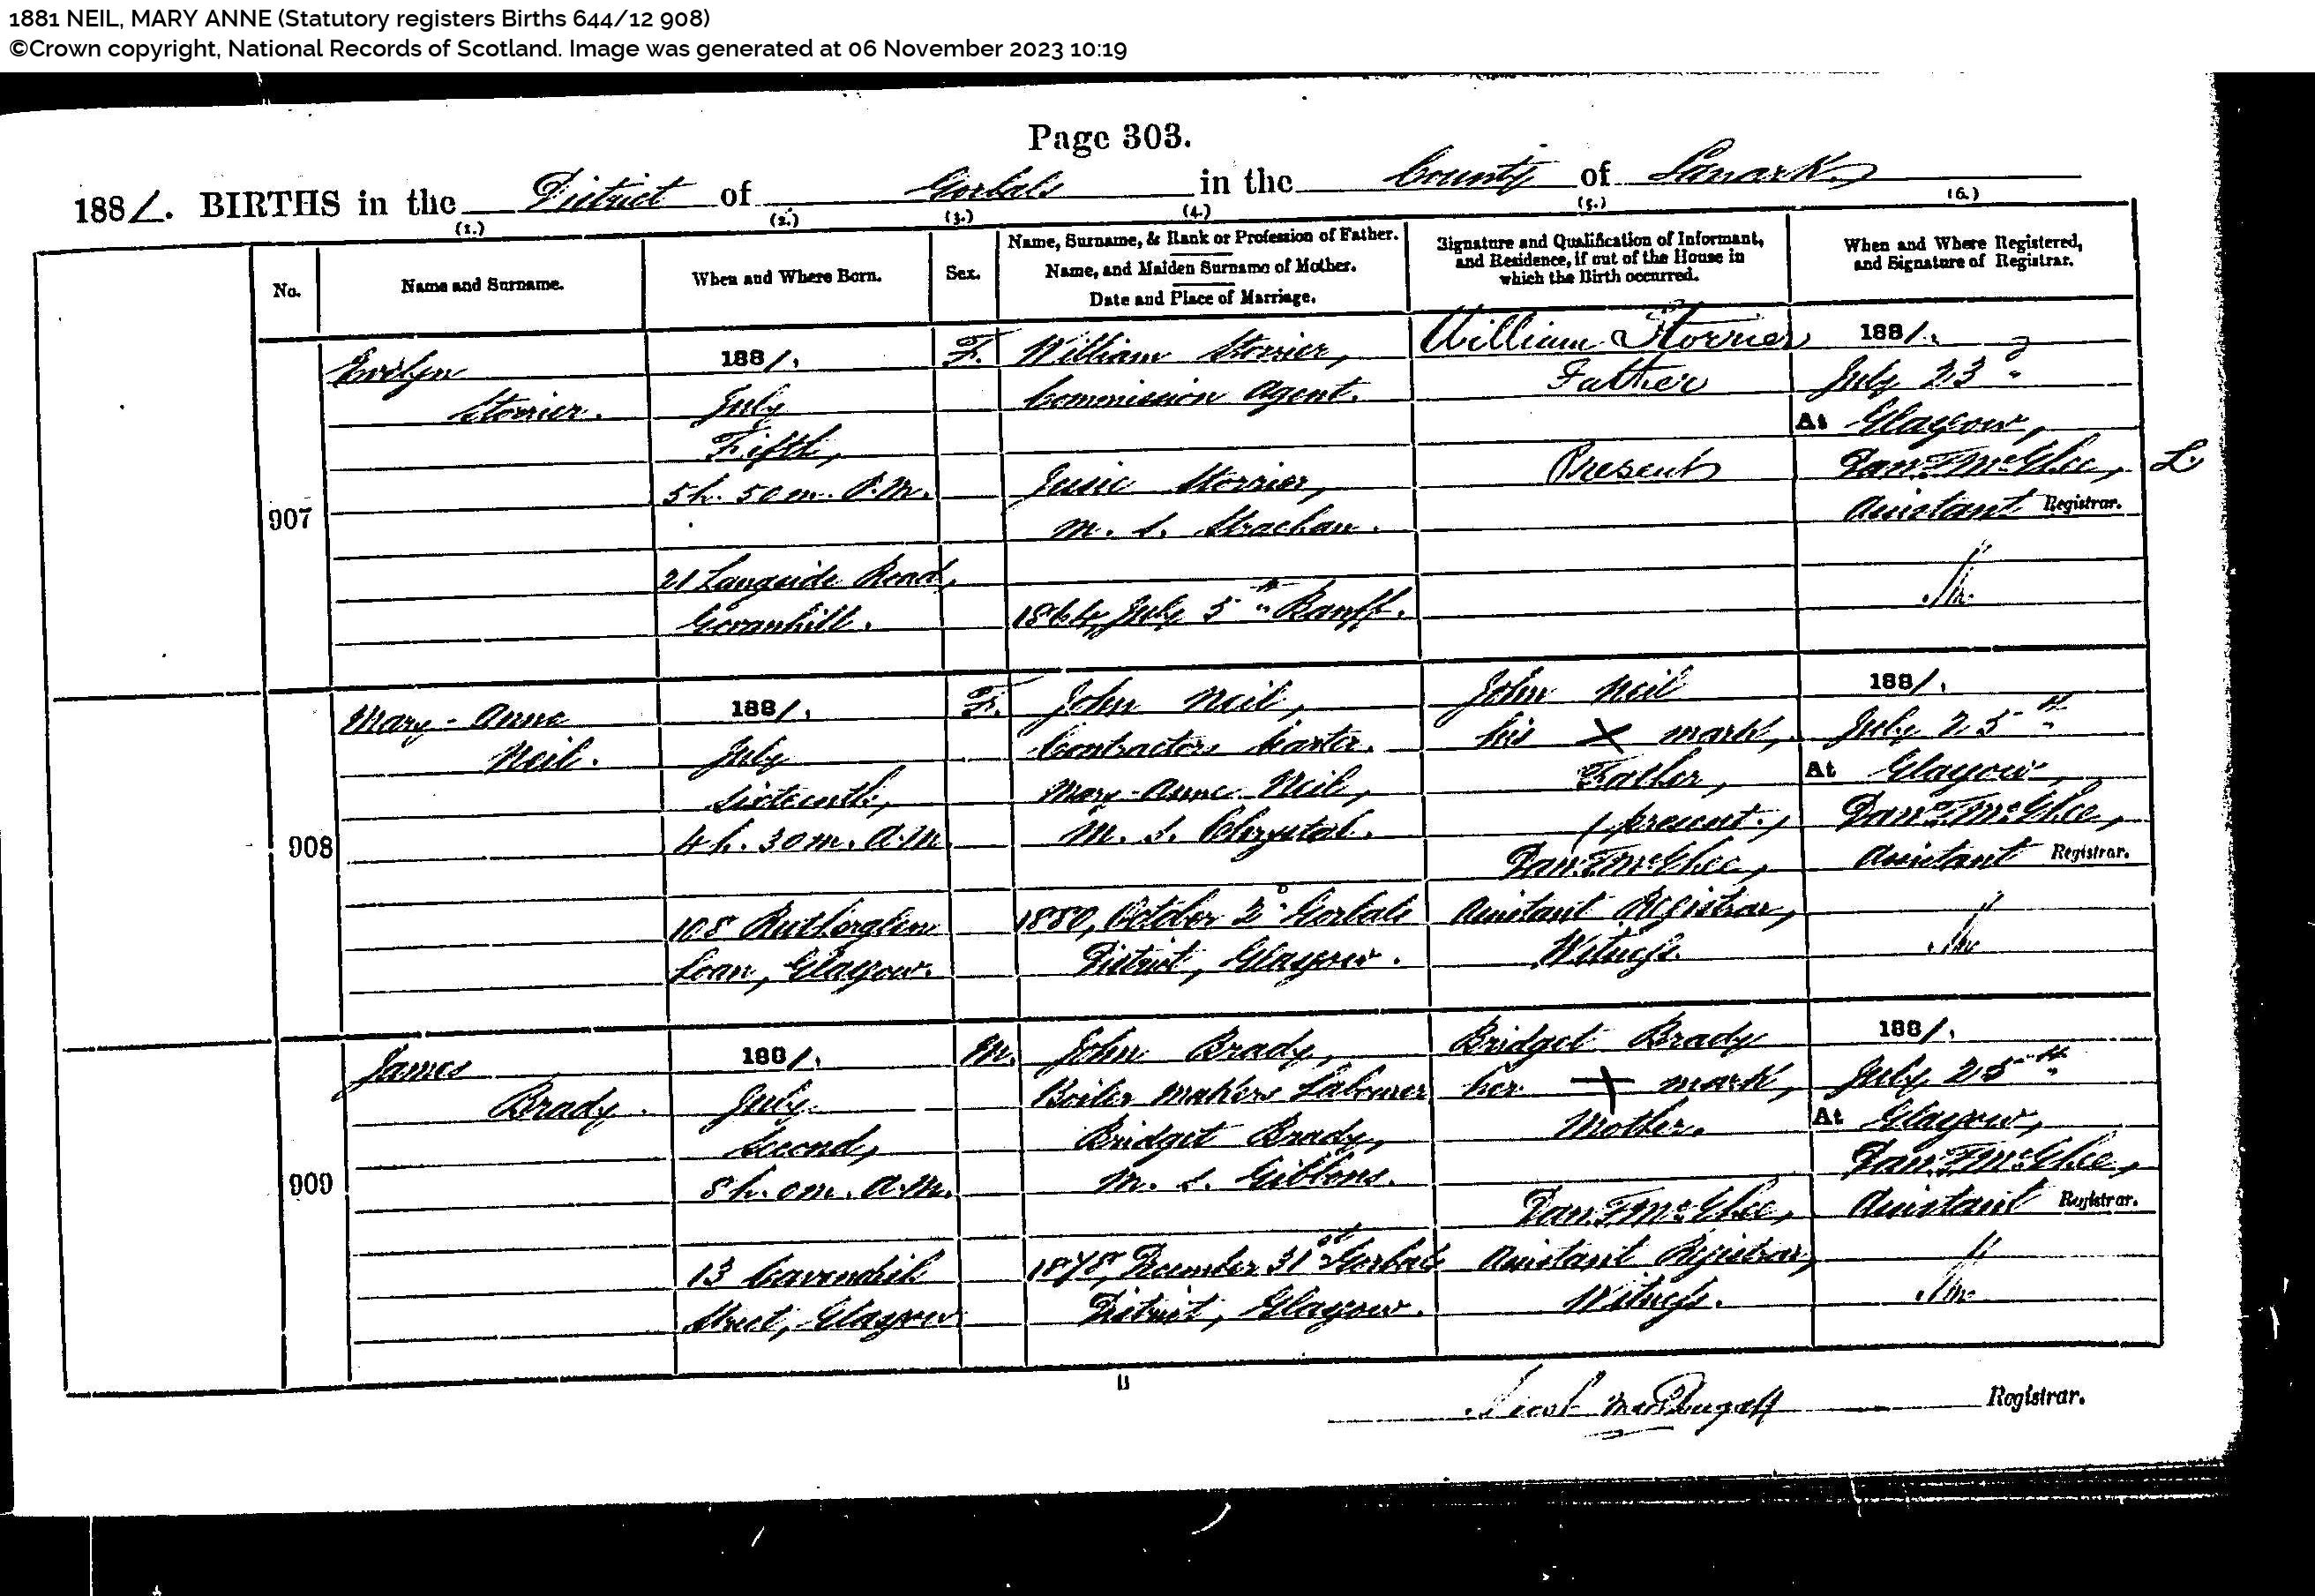 1881 NEIL, MARY ANNE (Statutory registers Births 644/12 908)
©Crown copyright, National Records of Scotland. Image was generated at 06 November 2023 10:19
Page 303.
1881. BIRTHS in the District of Gorbals in the County of Lanark
(1.) (2.) (3.) (4.) (5.) (6.)
No.
Name and Surname.
When and Where Born.
Sex.
Name, Surname, & Rank or Profession of Father.
Name, and Maiden Surname of Mother.
Date and Place of Marriage.
Signature and Qualification of Informant,
and Residence, if out of the House in
which the Birth occurred.
When and Where Registered,
and Signature of Registrar.
907
Evelyn
Storrier.
1881.
July
Fifth,
5 h. 50 m. P.M.
21 Langside Road,
Govanhill.
F.
William Storrier,
Commission Agent.
Jessie Storrier,
m. s. Strachan.
1864, July 5th Banff.
William Storrier
Father
Present
1881.
July 23d
At Glasgow,
Danl. F. McGhee,
Assistant Registrar.
L
908
Mary-Anne
Neil.
1881.
July
Sixteenth,
4 h. 30 m. A.M.
108 Rutherglen
Loan, Glasgow.
F.
John Neil,
Contractors Carter.
Mary-Anne Neil,
M. S. Chrystal.
1880, October 2d Gorbals
District, Glasgow.
John Neil
his X mark,
Father,
(present.)
Danl. F. McGhee,
Assistant Registrar,
Witness.
1881.
July 25th
At Glasgow,
Danl. F. McGhee,
Assistant Registrar.
909
James
Brady.
1881.
July
Second,
8 h. 0 m. A.M.
13 Cavendish
Street, Glasgow
M.
John Brady,
Boiler Makers Labourer
Bridget Brady,
M. S. Gibbons.
1878, December 31st Gorbals
District, Glasgow.
Bridget Brady
her + mark,
Mother.
Danl. F. McGhee,
Assistant Registrar,
Witness.
1881.
July 25th
At Glasgow,
Danl. F. McGhee,
Assistant Registrar.
Registrar.